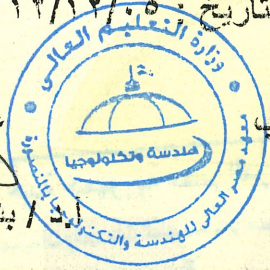 تاريخ
وزارة التعليم العالى
هندسة وتكنولوجيا
معهد مصر العالى للهندسة والتكنولوجيا بالمنصورة